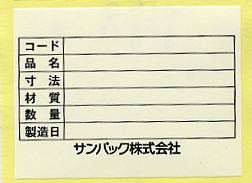 コード
品名
寸法
材質
数量
製造日
サンパック株式会社